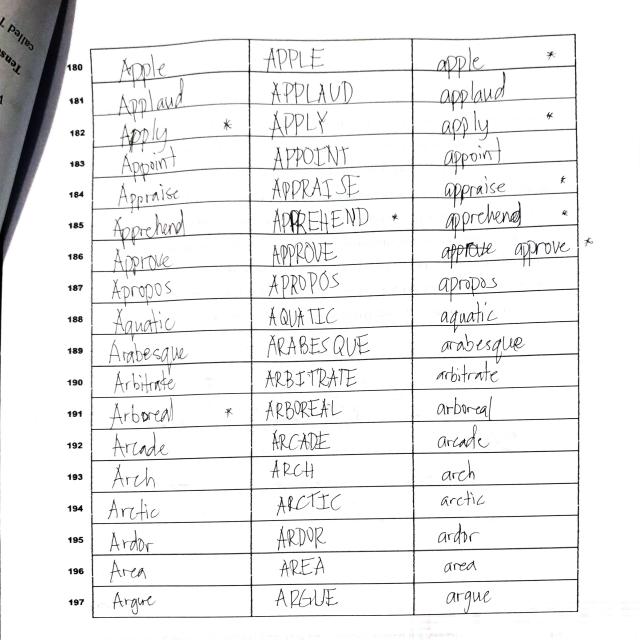 called T
Tense
180 Apple APPLE apple *
181 Applaud APPLAUD applaud
182 Apply * APPLY apply *
183 Appoint APPOINT appoint
184 Appraise APPRAISE appraise *
185 Apprehend APPREHEND * apprehend *
186 Approve APPROVE approve *
187 Apropos APROPOS apropos
188 Aquatic AQUATIC aquatic
189 Arabesque ARABESQUE arabesque
190 Arbitrate ARBITRATE arbitrate
191 Arboreal * ARBOREAL arboreal
192 Arcade ARCADE arcade
193 Arch ARCH arch
194 Arctic ARCTIC arctic
195 Ardor ARDOR ardor
196 Area AREA area
197 Argue ARGUE argue